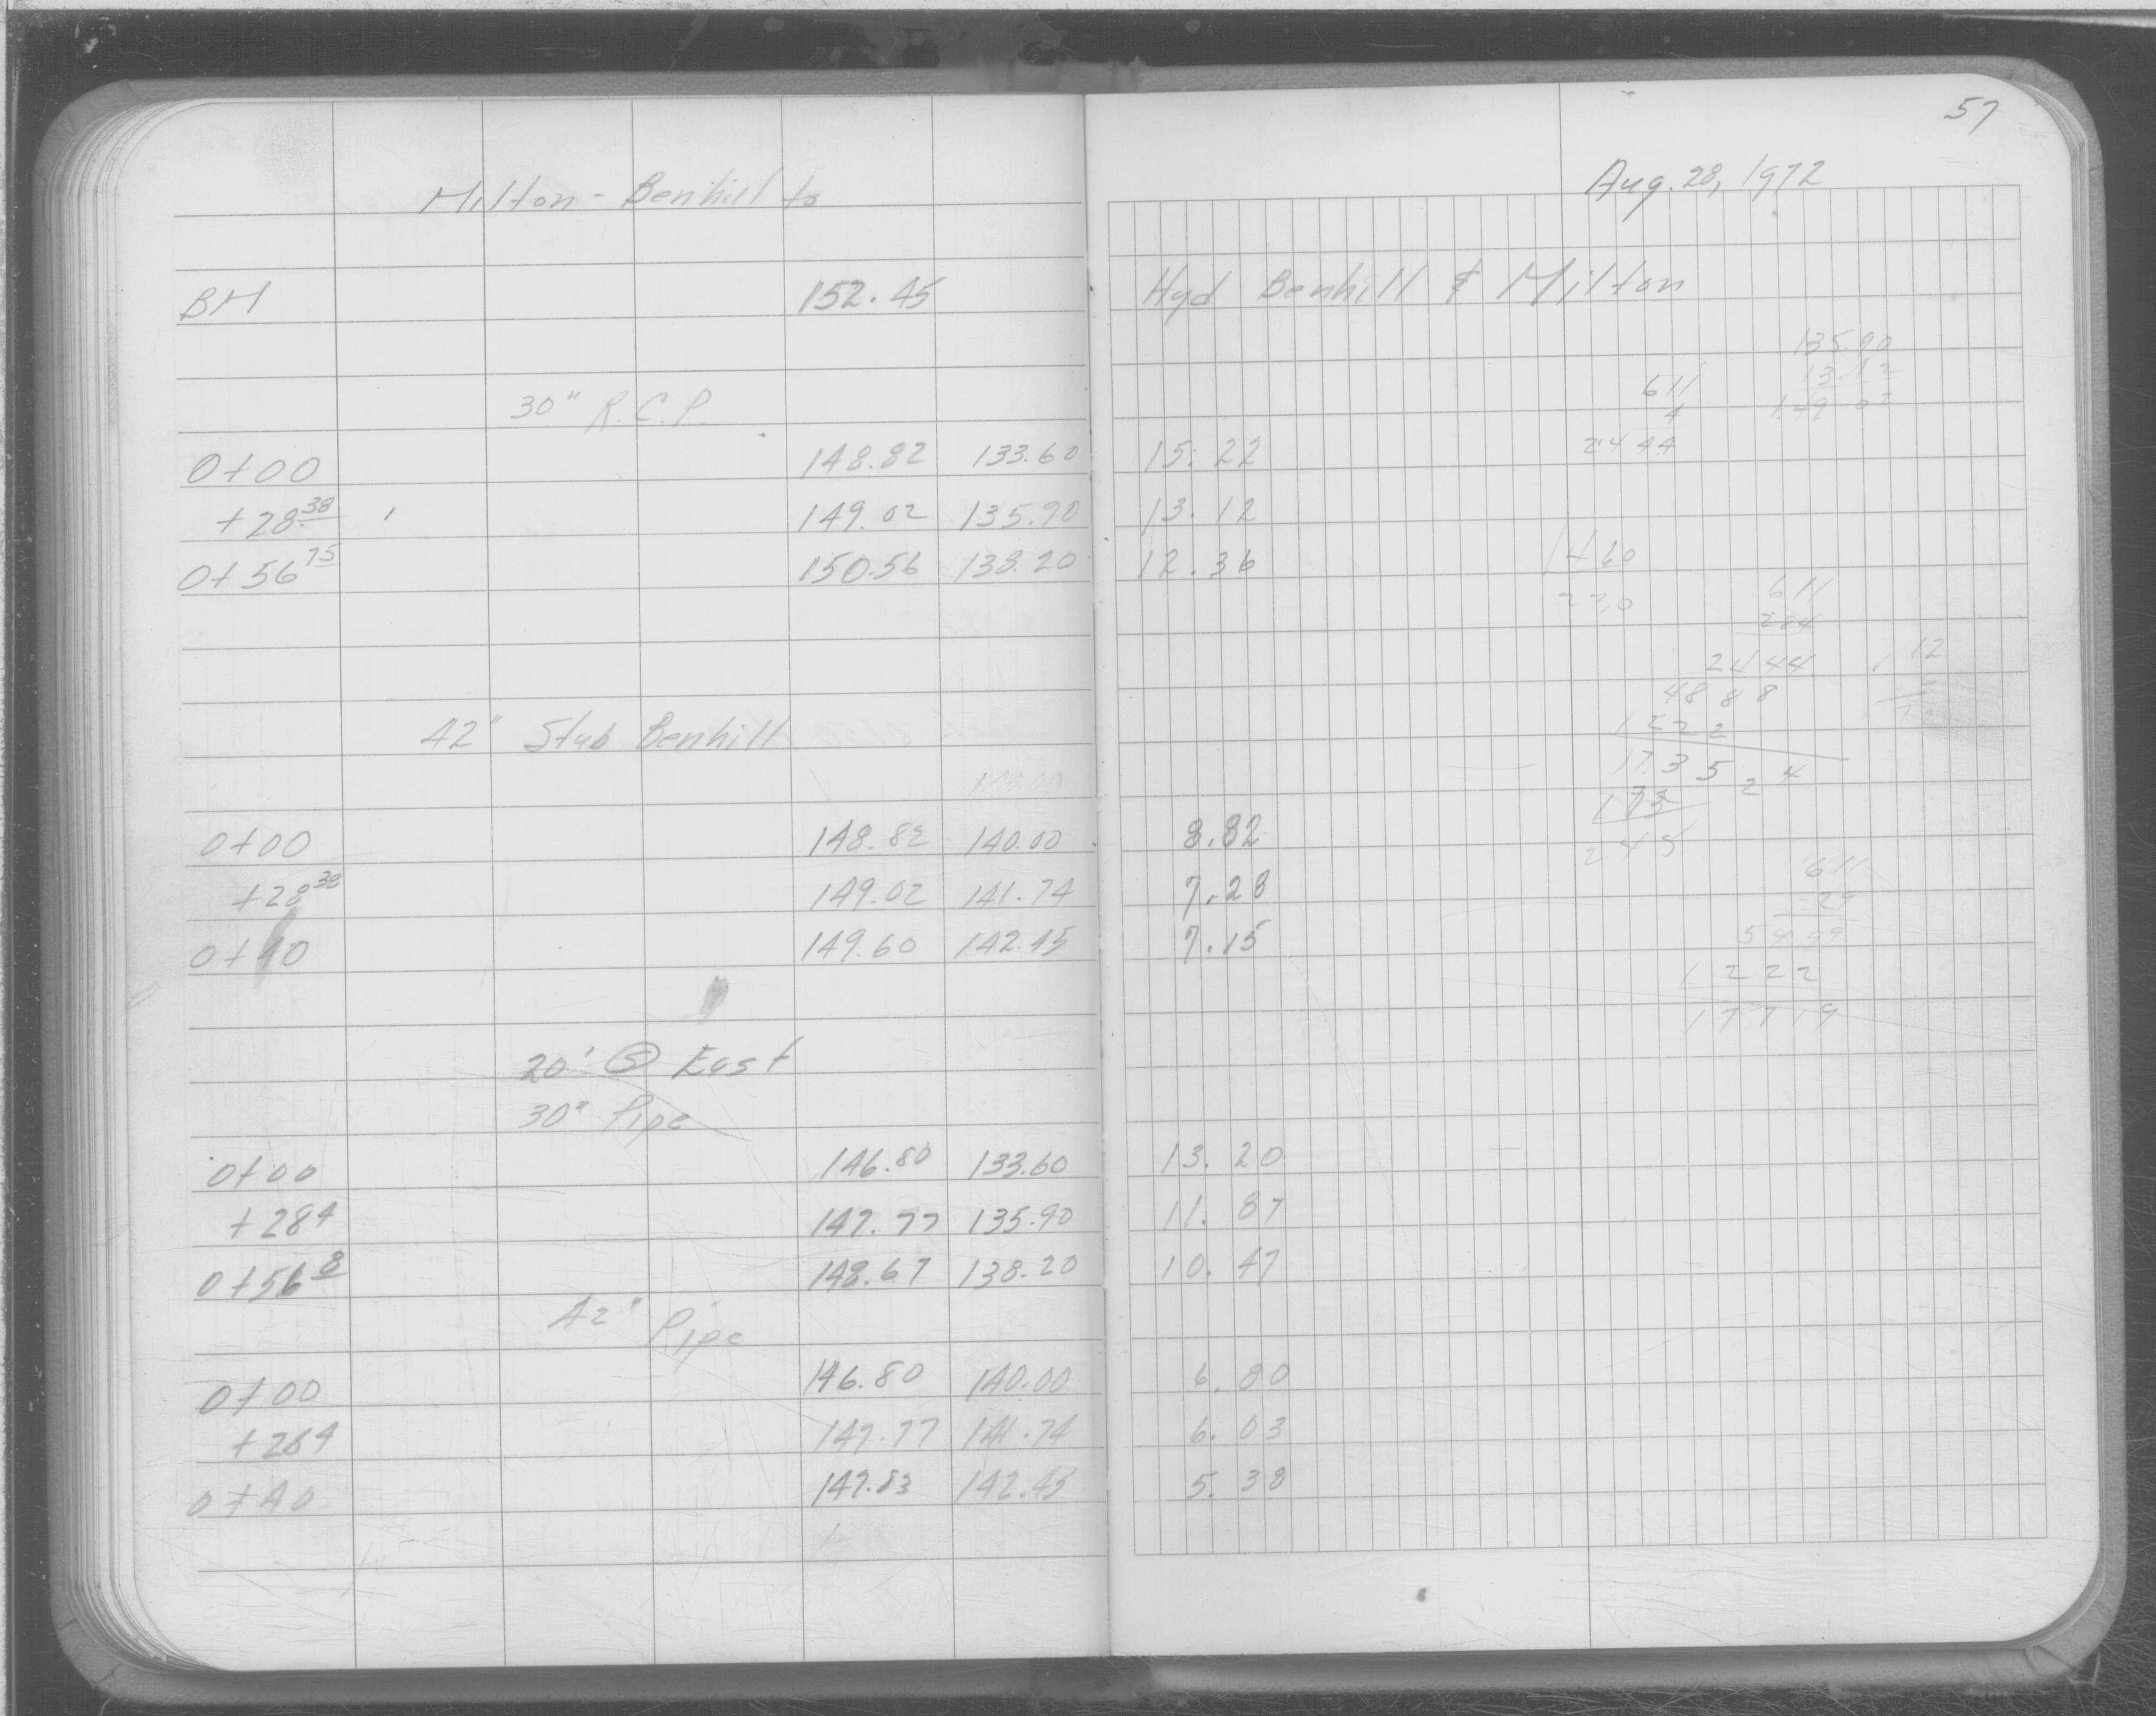 57
Milton - Benhill to Aug. 28, 1972
BM 152.45 Hyd Benhill & Milton
135.90
611 13.12
30" R.C.P. 4 149 02
0+00 148.82 133.60 15.22 2444
+28.38 149.02 135.90 13.12
0+56 75 150.56 138.20 12.36 460
611
284
2444 12
4888
42" Stub Benhill 1222
17.3524
173
0+00 148.82 140.00 8.82
+28 38 149.02 141.74 7.28 611
29
0+40 149.60 142.45 7.15 5499
1222
17719
20' Ⓢ East
30" Pipe
0+00 146.80 133.60 13.20
+28 4 147.77 135.90 11.87
0+56 8 148.67 138.20 10.47
42" Pipe
0+00 146.80 140.00 6.80
+28 4 147.77 141.74 6.03
0+40 147.83 142.45 5.38